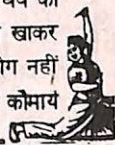 खाकर
ोग नहीं
कौमार्य